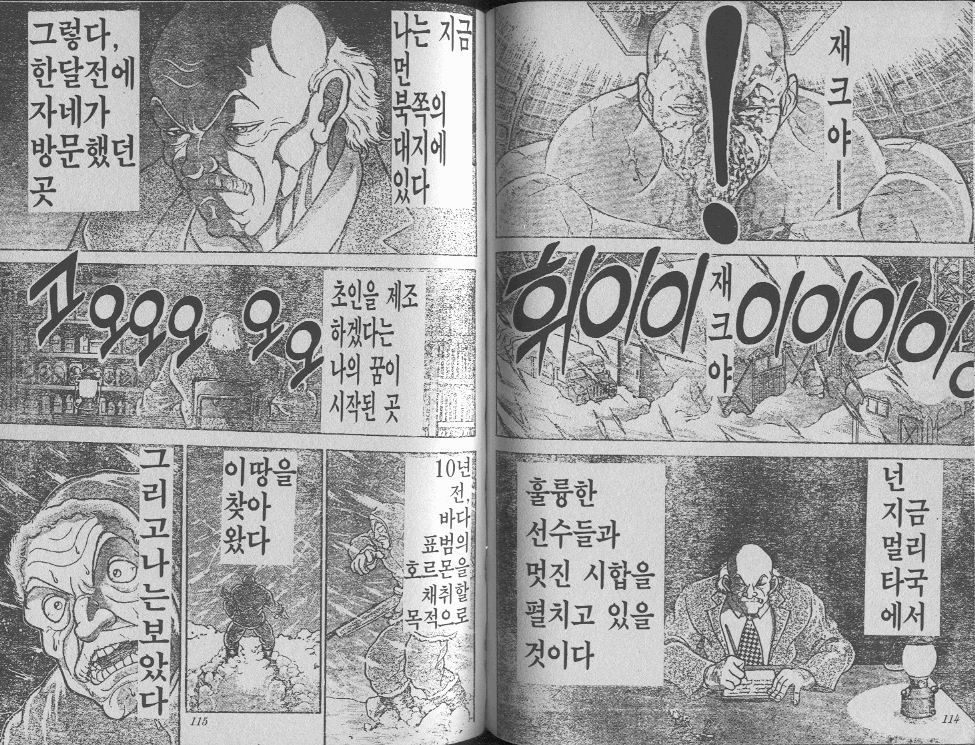 재크야—
!
휘이이
재크야
이이이잉
넌
지금
멀리
타국
에서
훌륭한
선수들과
멋진 시합을
펼치고 있을
것이다
114
나는 지금
먼
북쪽의
대지에
있다
그렇다,
한달전에
자네가
방문했던
곳
초인을 제조
하겠다는
나의 꿈이
시작된 곳
고오오오 오오
10년
전,
바다
표범의
호르몬을
채취할
목적으로
이땅을
찾아
왔다
그리고나는보았다
115